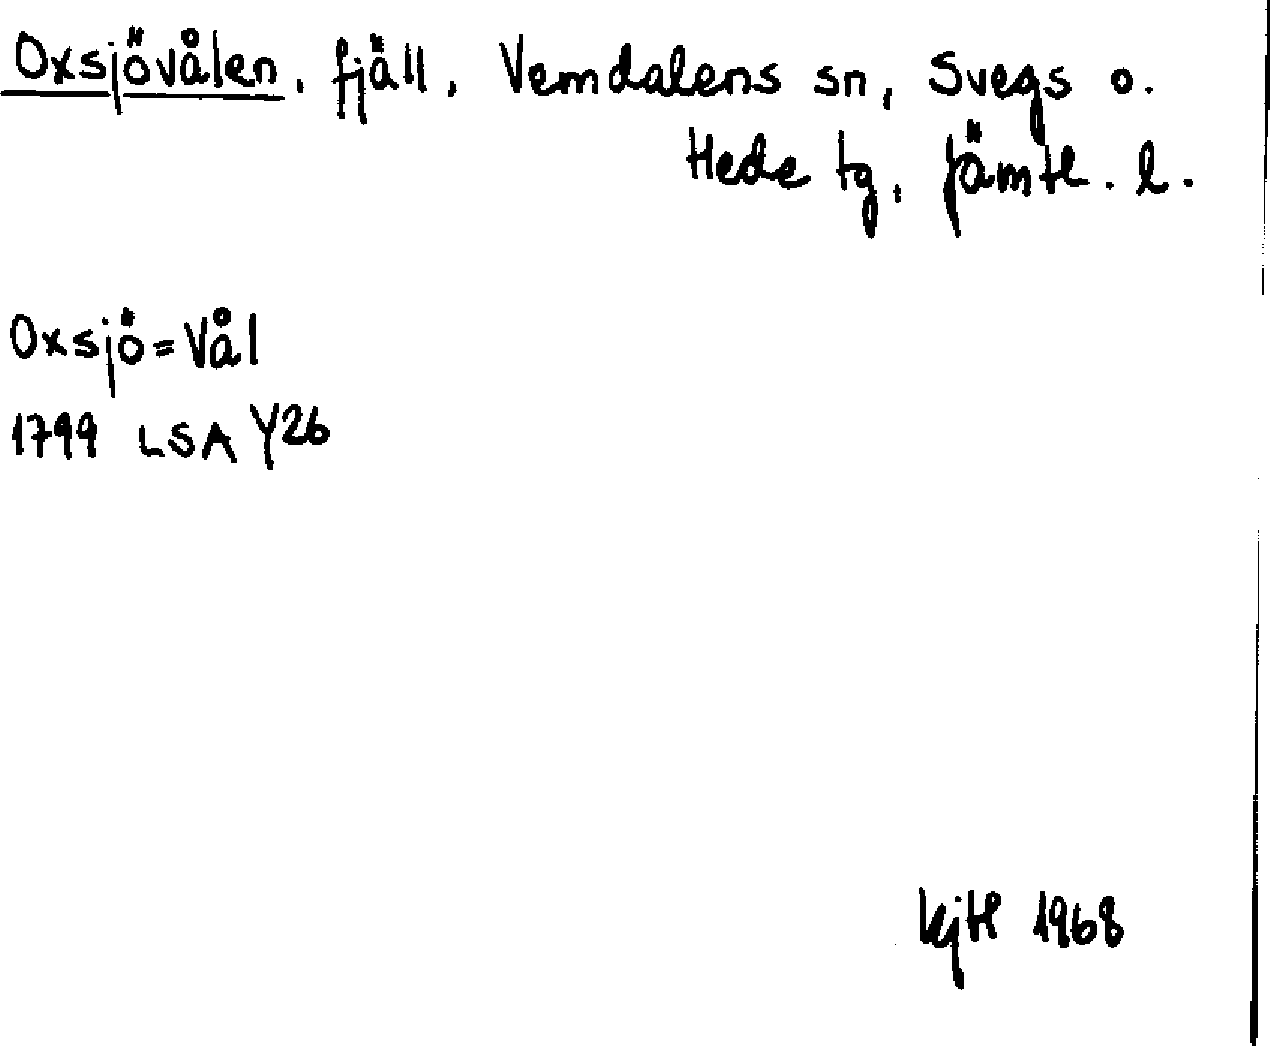 Oxsjövålen, fjäll, Vemdalens sn, Svegs o.
Hede tg, Jämtl. l.
Oxsjö=Vål
1799 LSA Y26
KjH 1968